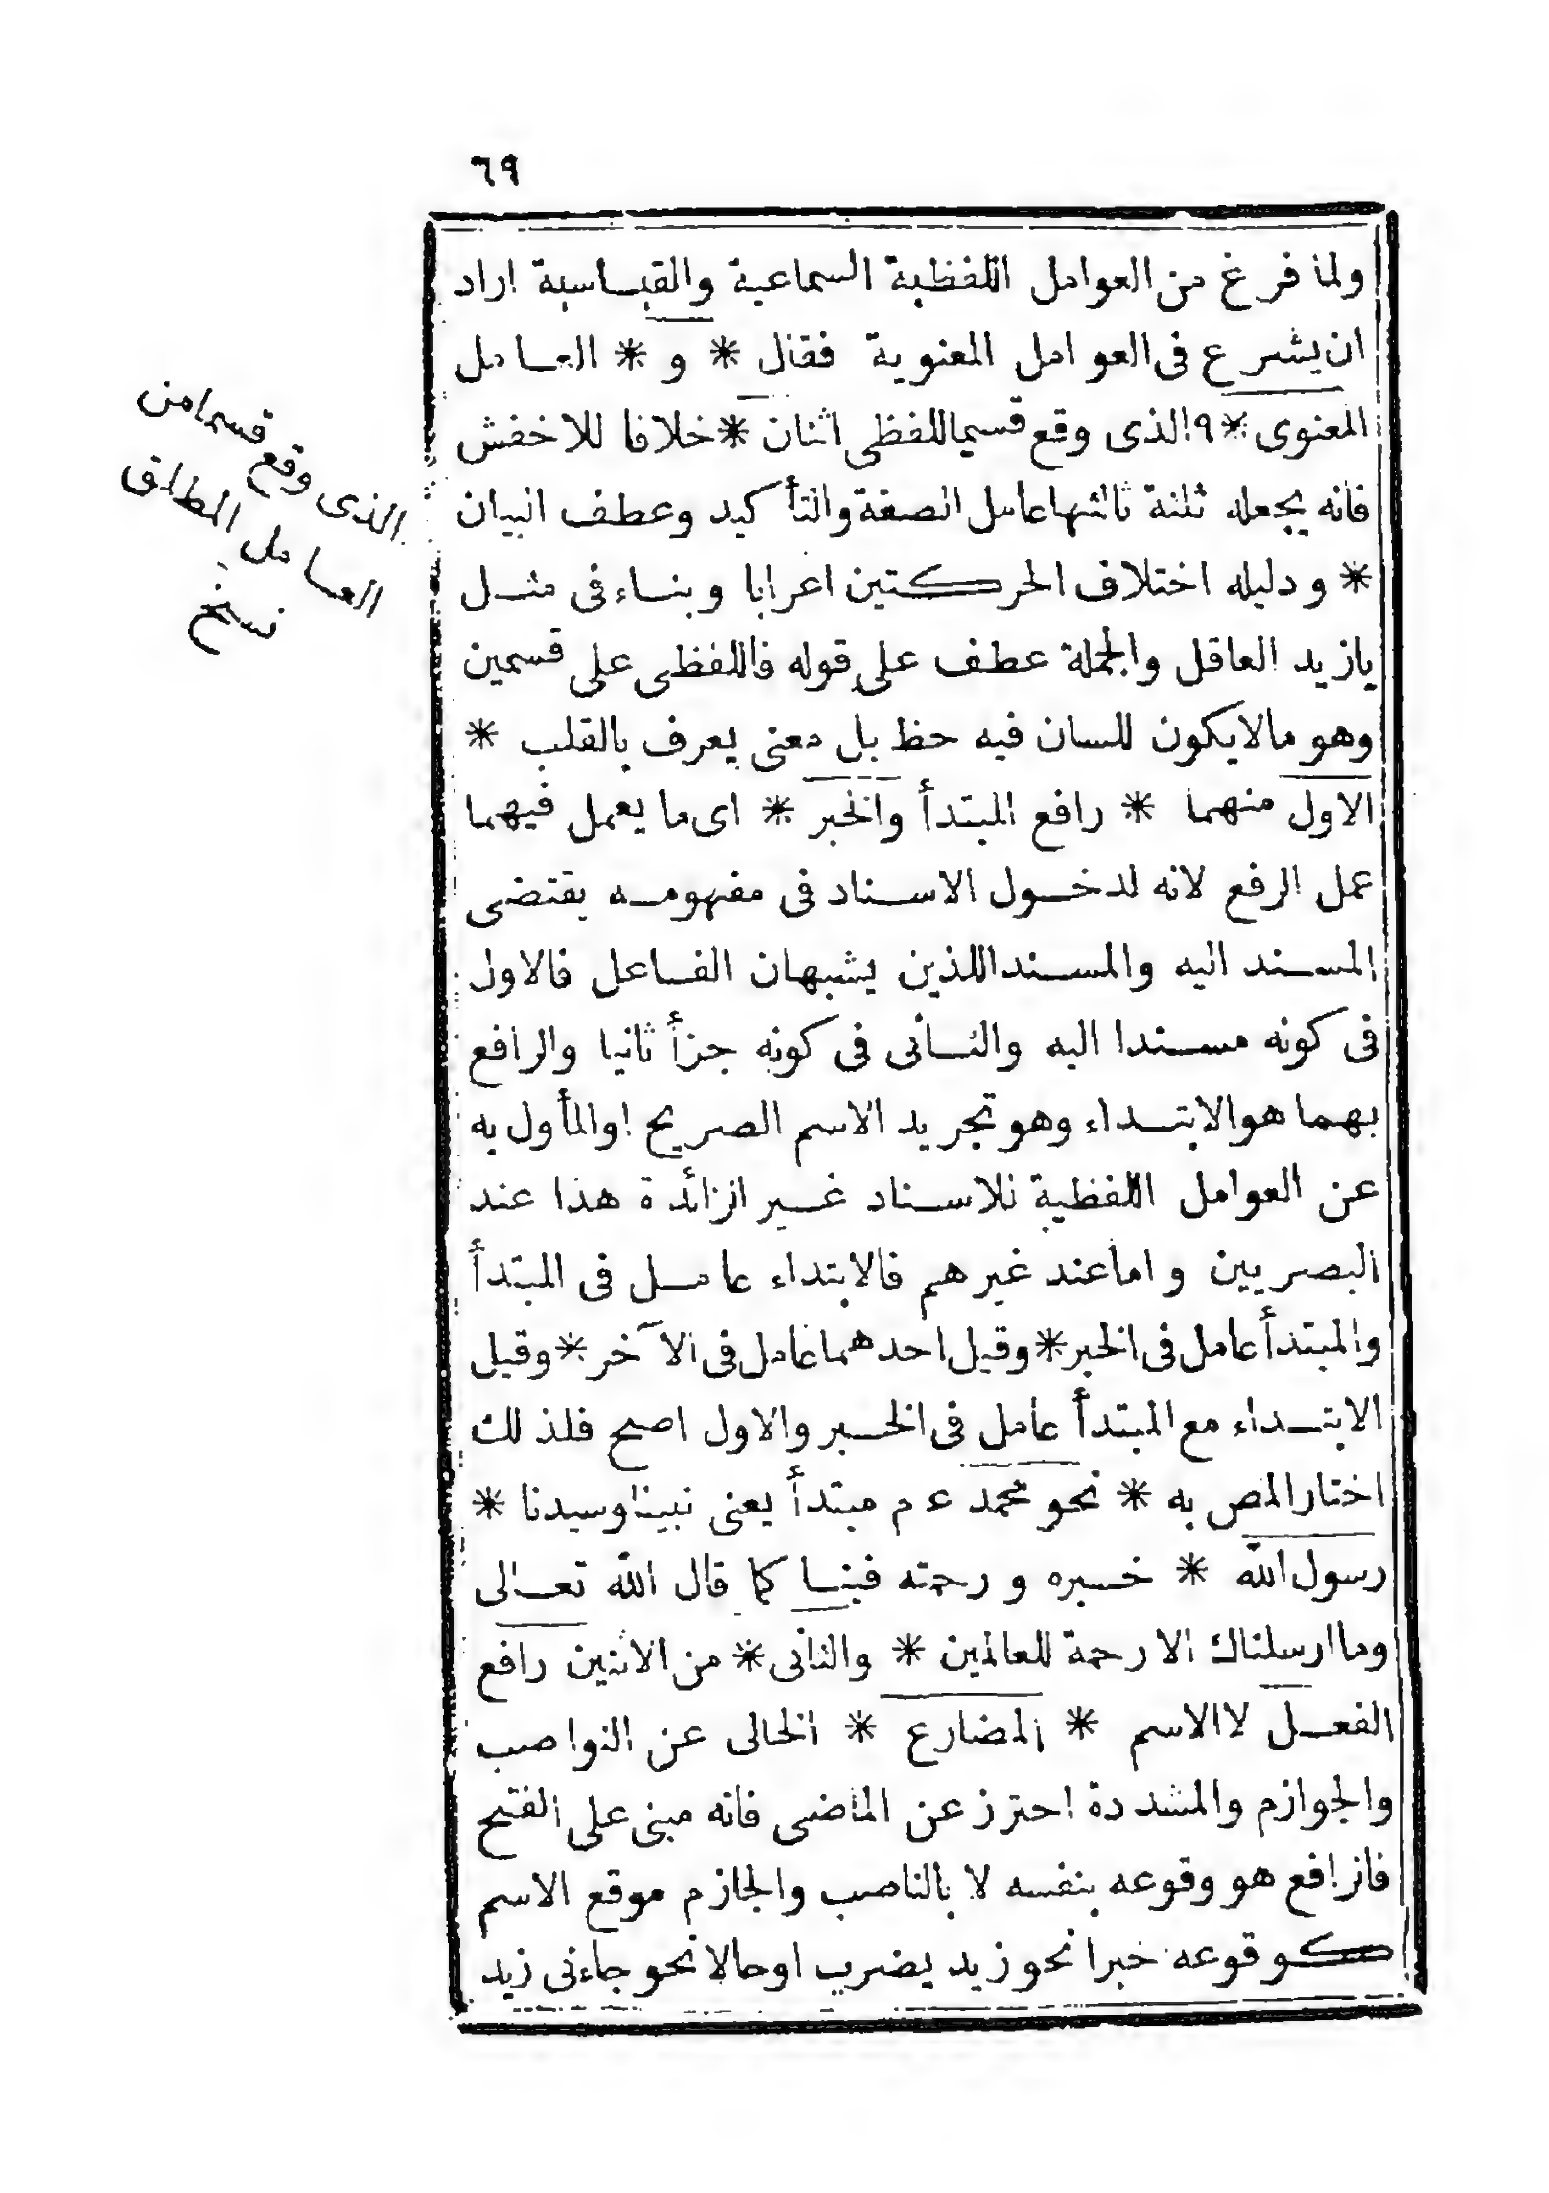 ٦٩
ولما فرغ من العوامل اللفظية السماعية والقياسية اراد
ان يشرع فى العوامل المعنوية فقال * و * العامل
المعنوى * ٩ الذى وقع قسيما للفظى اثنان * خلافا للاخفش
فانه يجعله ثلثة ثالثها عامل الصفة والتأكيد وعطف البيان
* ودليله اختلاف الحركتين اعرابا وبناء فى مثل
يازيد العاقل والجملة عطف على قوله فاللفظى على قسمين
وهو مالايكون للسان فيه حظ بل معنى يعرف بالقلب *
الاول منهما * رافع المبتدأ والخبر * اى ما يعمل فيهما
عمل الرفع لانه لدخول الاسناد فى مفهومه يقتضى
المسند اليه والمسند اللذين يشبهان الفاعل فالاول
فى كونه مسندا اليه والثانى فى كونه جزأ ثانيا والرافع
بهما هو الابتداء وهو تجريد الاسم الصريح اوالمأول به
عن العوامل اللفظية للاسناد غير الزائدة هذا عند
البصريين واما عند غيرهم فالابتداء عامل فى المبتدأ
والمبتدأ عامل فى الخبر * وقيل احدهما عامل فى الآخر * وقيل
الابتداء مع المبتدأ عامل فى الخبر والاول اصح فلذلك
اختار المص به * نحو محمد ع م مبتدأ يعنى نبينا وسيدنا *
رسول الله * خبره ورحمته فينا كما قال الله تعالى
وما ارسلناك الا رحمة للعالمين * والثانى * من الاثنين رافع
الفعل لا الاسم * المضارع * الخالى عن النواصب
والجوازم والمشددة احترز عن الماضى فانه مبنى على الفتح
فالرافع هو وقوعه بنفسه لا بالناصب والجازم موقع الاسم
كوقوعه خبرا نحو زيد يضرب اوحالا نحو جاءنى زيد
الذى وقع قسما من
العامل المطلق
نسخ